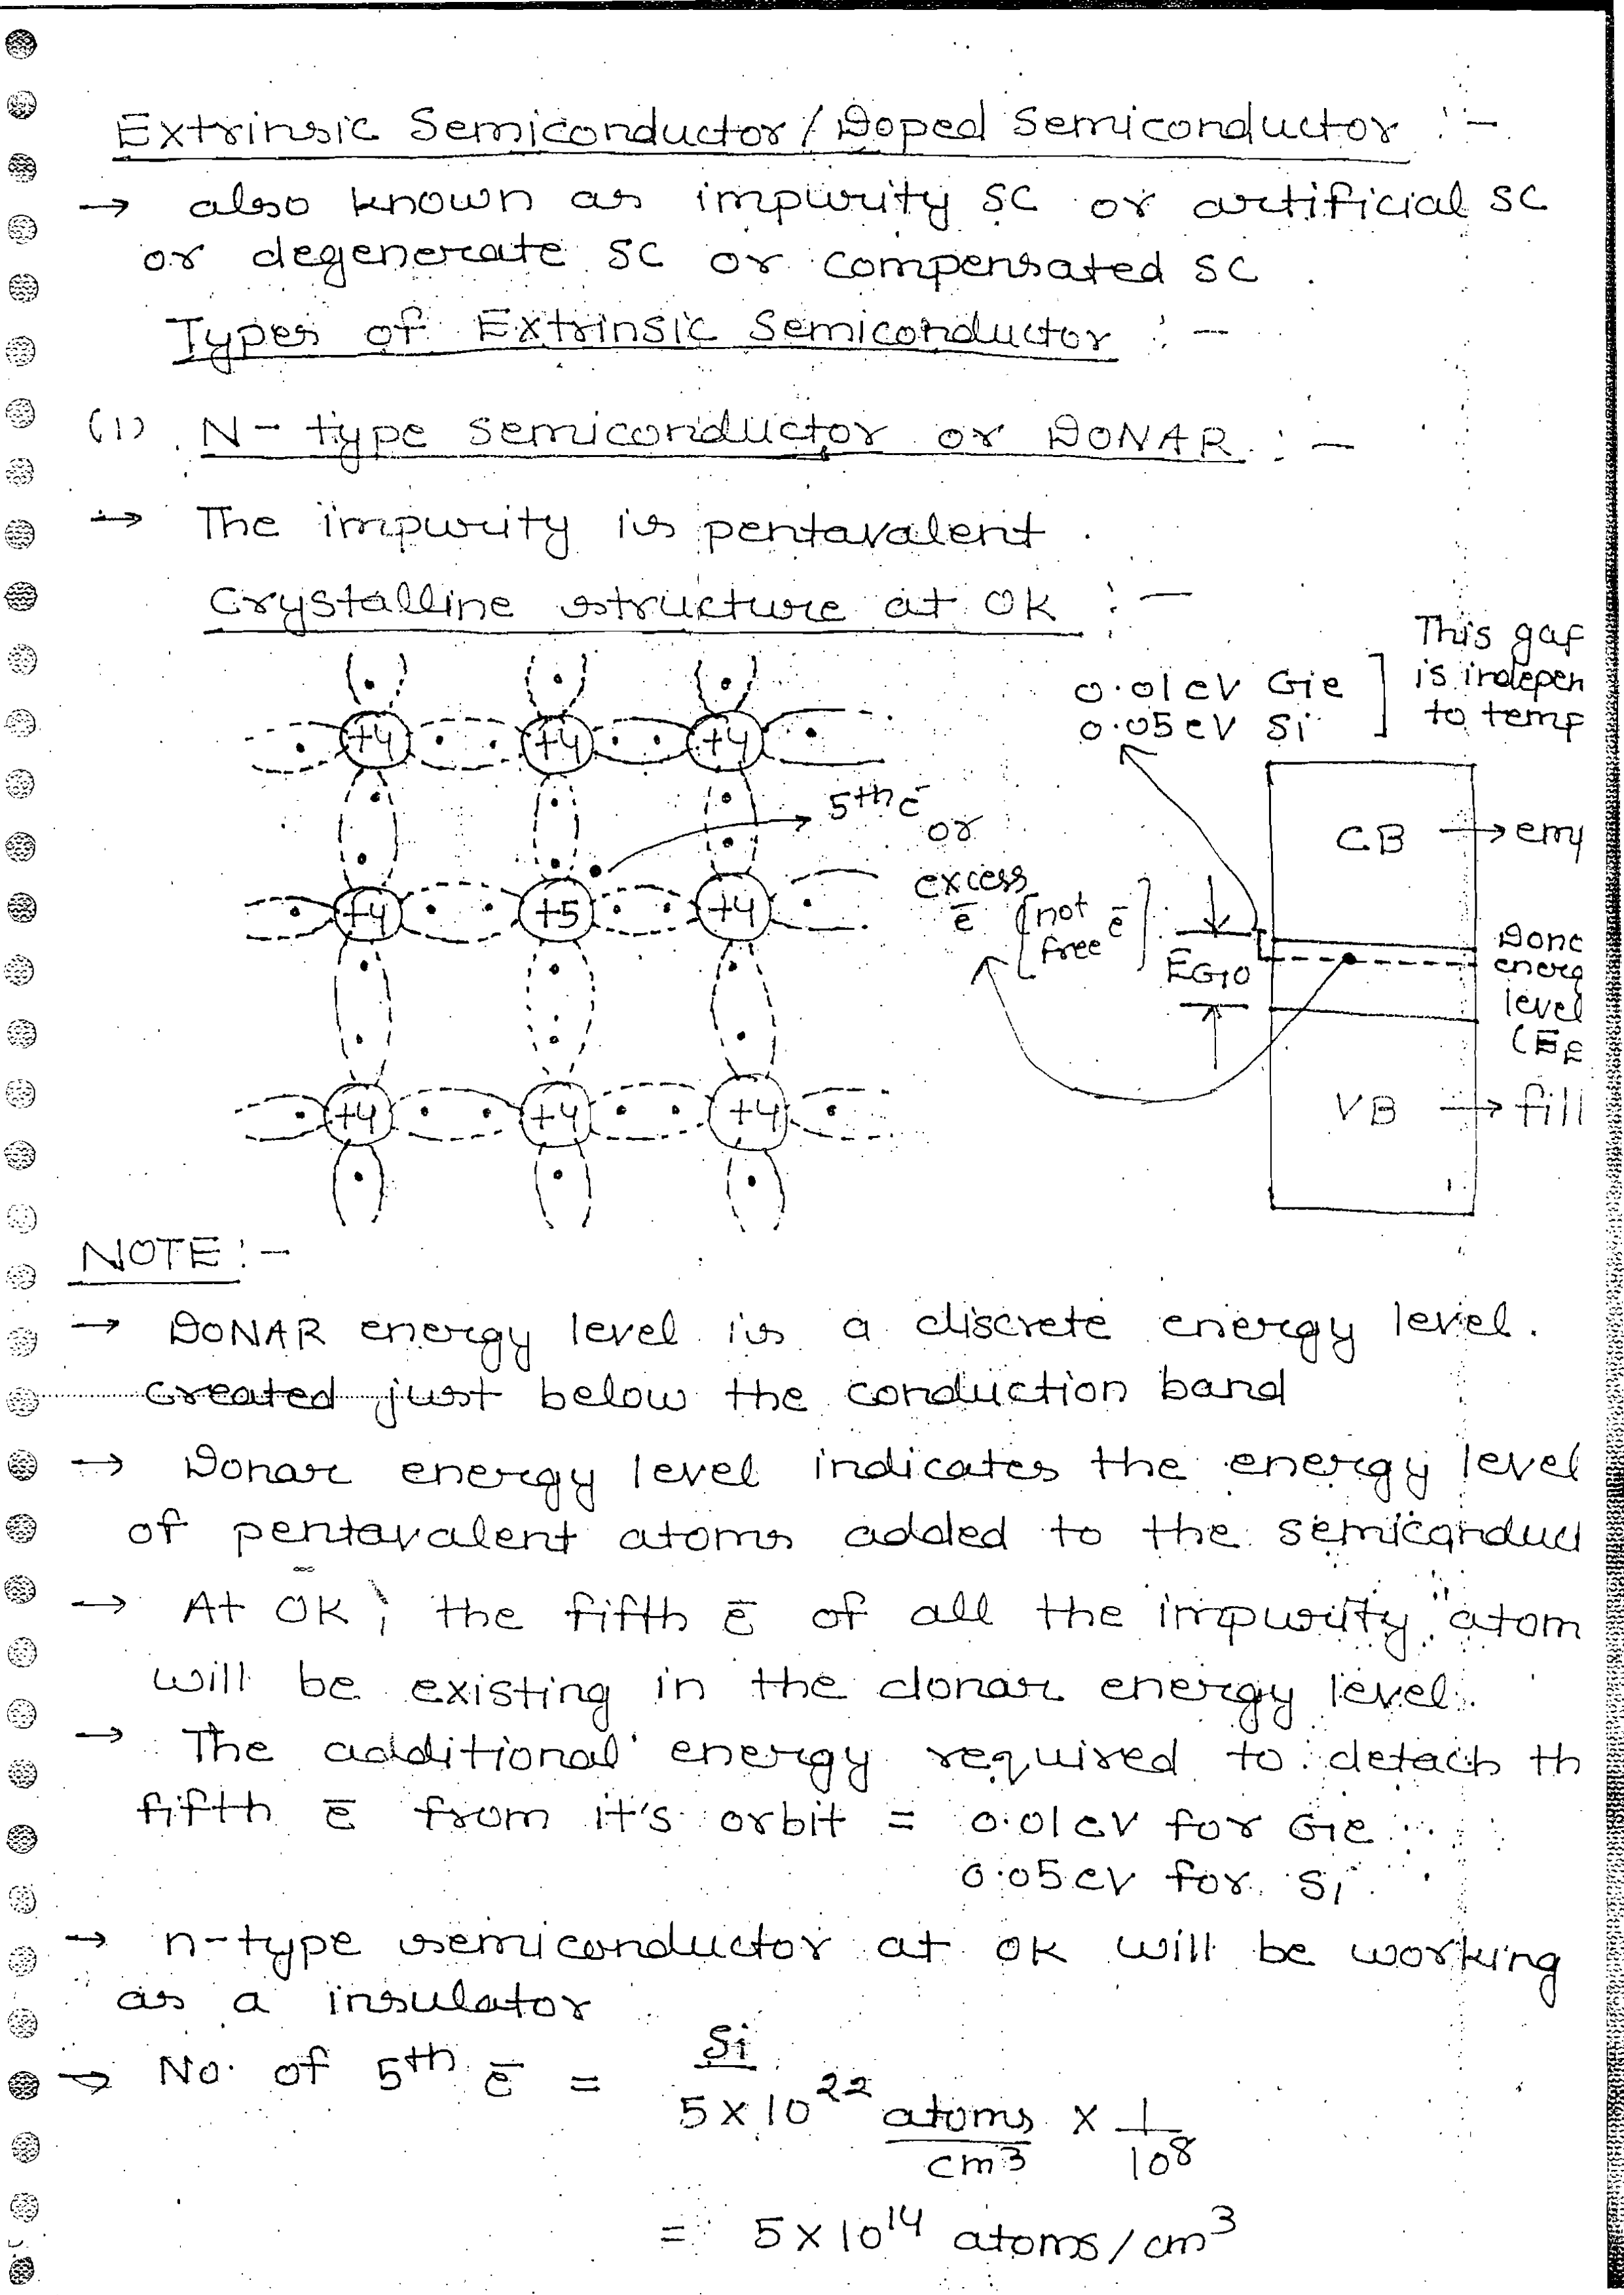 Extrinsic Semiconductor / Doped Semiconductor :-
→ also known as impurity SC or artificial SC
or degenerate SC or compensated SC.
Types of Extrinsic Semiconductor :-
(1) N-type semiconductor or DONAR :-
→ The impurity is pentavalent.
Crystalline structure at 0K :-
This gap
0.01eV Ge ] is indepen
0.05eV Si ] to temp
+4 +4 +4
5th ē
or
excess
ē [not free ē]
CB → emp
+4 +5 +4
EG0
Dono
energ
level
(EE
+4 +4 +4
VB → fill
NOTE :-
→ DONAR energy level is a discrete energy level.
created just below the conduction band
→ Donar energy level indicates the energy level
of pentavalent atoms added to the semiconduct
→ At 0K, the fifth ē of all the impurity atom
will be existing in the donar energy level.
→ The additional energy required to detach th
fifth ē from it's orbit = 0.01eV for Ge
0.05eV for Si
→ n-type semiconductor at 0K will be working
as a insulator
Si
→ No. of 5th ē = 5×10²² atoms/cm³ × 1/10⁸
= 5×10¹⁴ atoms/cm³